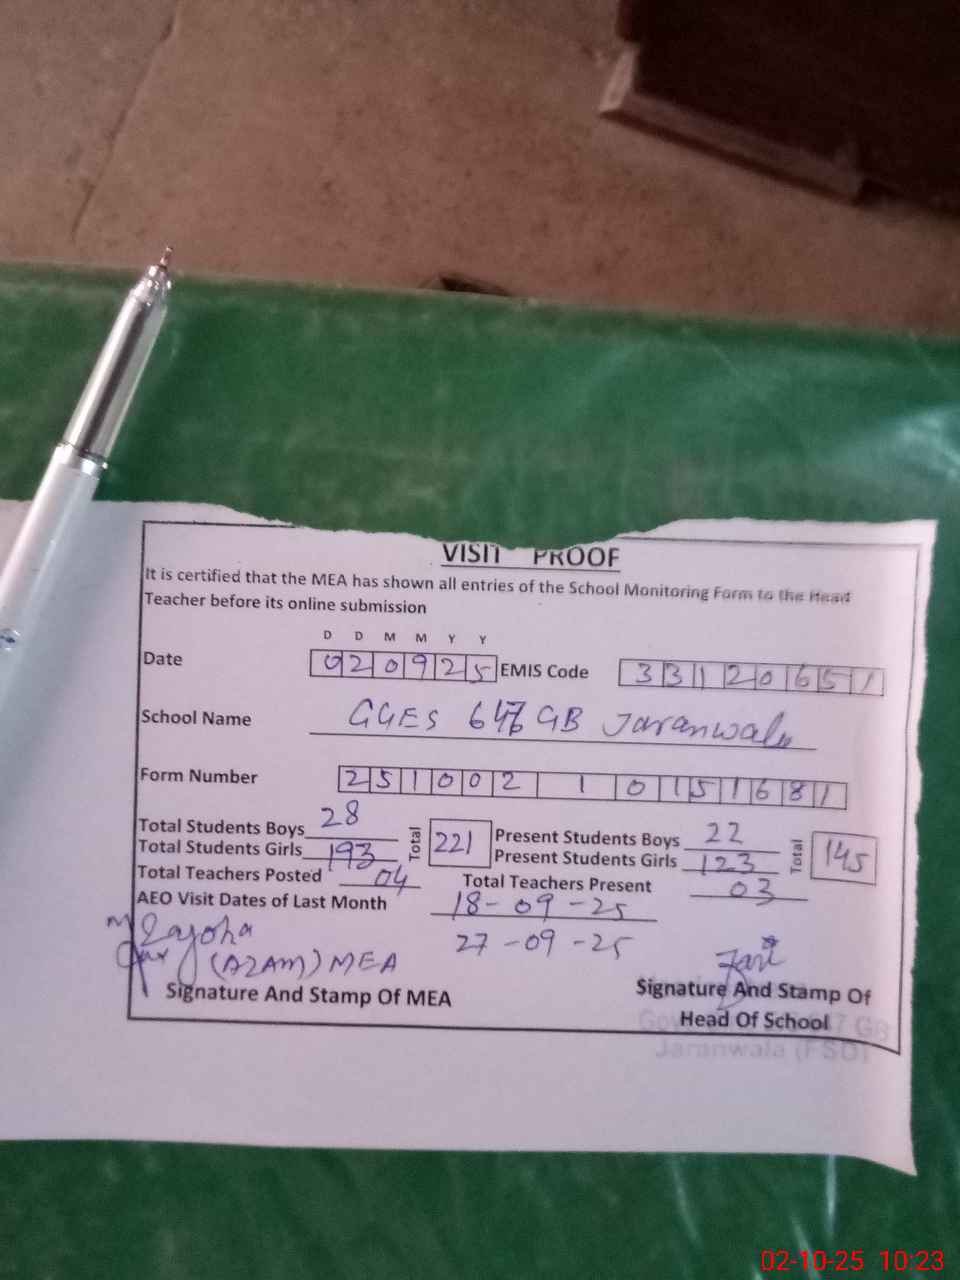 VISIT PROOF
It is certified that the MEA has shown all entries of the School Monitoring Form to the Head
Teacher before its online submission
D D M M Y Y
Date 020925 EMIS Code 33120651
School Name GGES 647 GB Jaranwala
Form Number 251002 1 0151681
Total Students Boys 28 Total 221 Present Students Boys 22 Total 145
Total Students Girls 193 Present Students Girls 123
Total Teachers Posted 04 Total Teachers Present 03
AEO Visit Dates of Last Month 18-09-25
27-09-25
(AZAM) MEA
Signature And Stamp Of MEA Signature And Stamp Of
Head Of School
647 GB
Jaranwala (FSD)
02-10-25 10:23